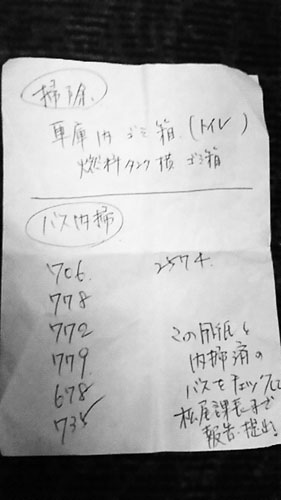 掃除
車庫内 ゴミ箱 (トイレ)
燃料タンク横 ゴミ箱
バス内掃
706 2574
778
772
779
678
735
この用紙と
内掃済の
バスをチェックして
松尾課長まで
報告・提出!